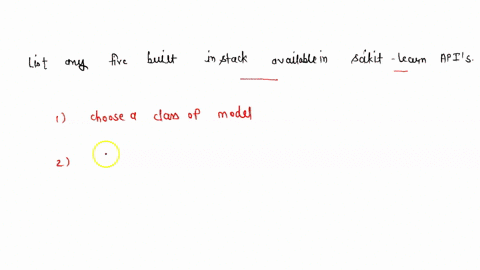 List any five built in stack available in scikit-learn API's.
1) choose a class of model
2)